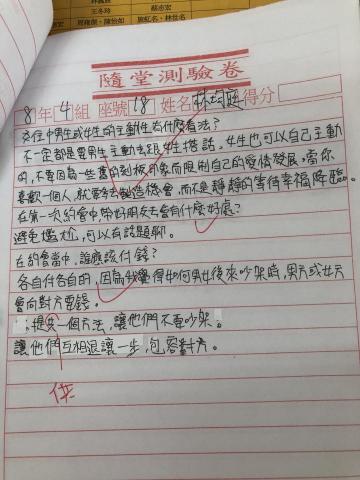 王冬玲 蔡志宏
隨堂測驗卷
8年4組 座號18 姓名 林 得分
交往中男生或女生的主動性有什麼看法?
不一定都是要男生主動去跟女生搭話。女生也可以自己主動
的,不要因為一些舊的刻板印象而限制自己的愛情發展。當你
喜歡一個人,就要多去製造機會,而不是靜靜的等待幸福降臨。
在第一次約會中,帶好朋友去會有什麼好處?
避免尷尬,可以有話題聊。
在約會當中,誰應該付錢?
各自付各自的,因為我覺得如何男女後來吵架時,男方或女方
會向對方要錢。
提共一個方法,讓他們不要吵架。
讓他們互相退讓一步,包容對方。
供